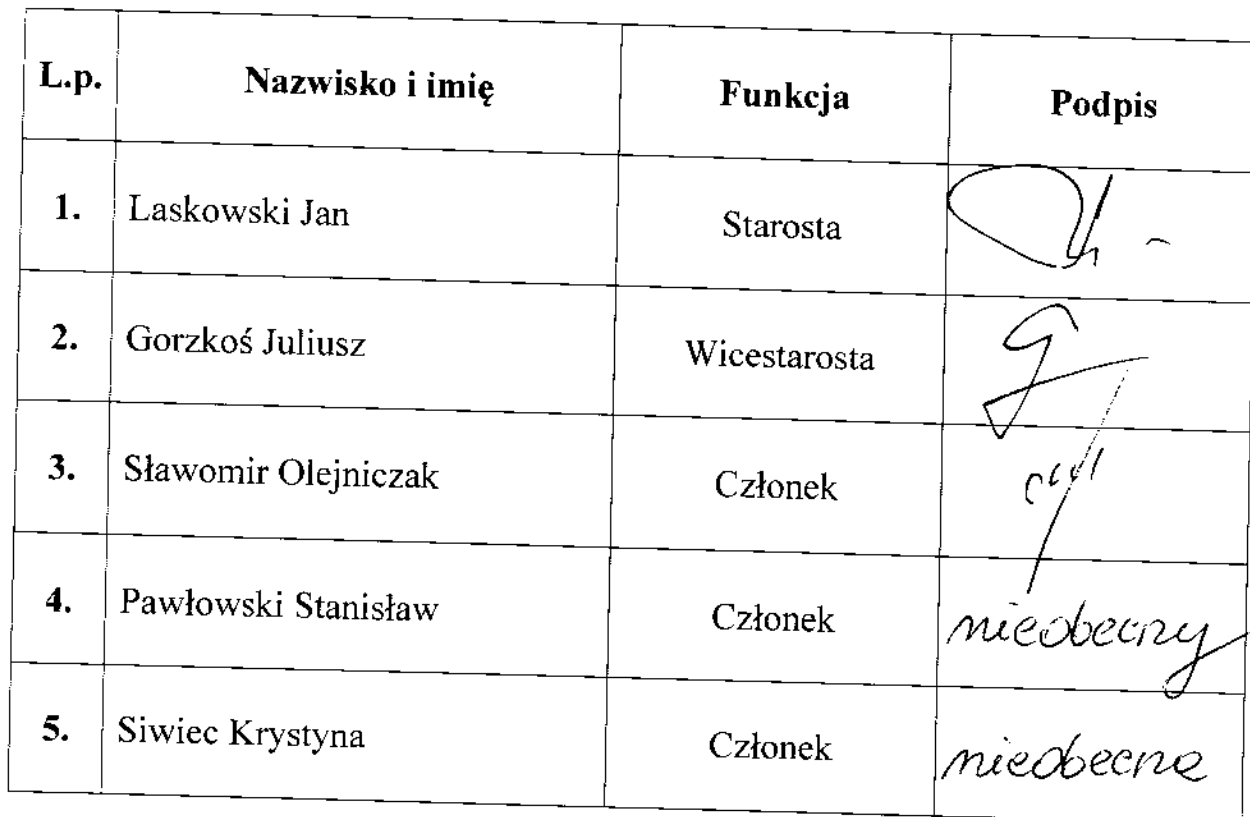 L.p. Nazwisko i imię Funkcja Podpis
1. Laskowski Jan Starosta
2. Gorzkoś Juliusz Wicestarosta
3. Sławomir Olejniczak Członek
4. Pawłowski Stanisław Członek nieobecny
5. Siwiec Krystyna Członek nieobecna